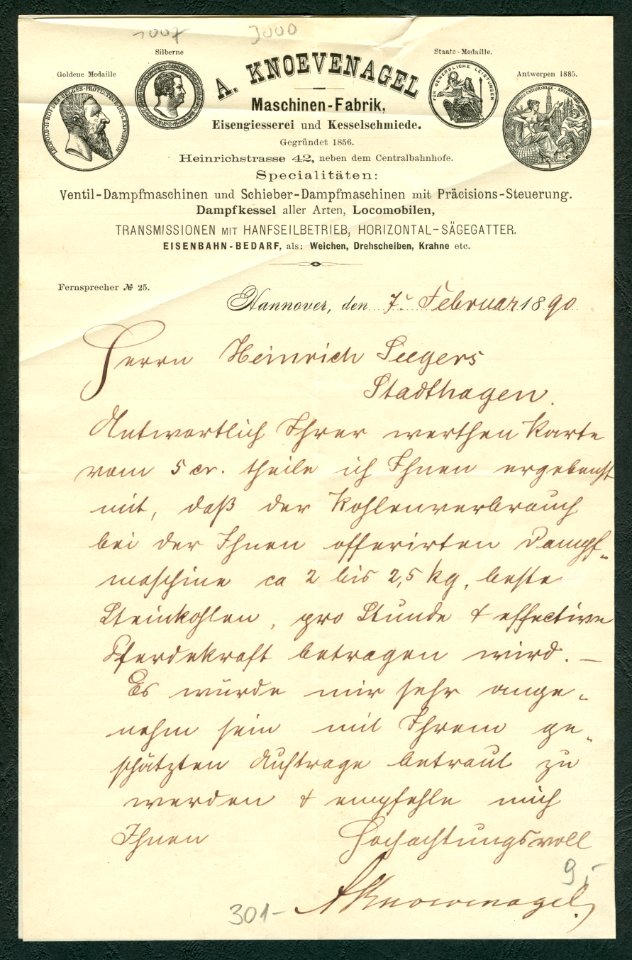 1007 3000
Goldene Medaille
Silberne
Staats-Medaille.
Antwerpen 1885.
A. KNOEVENAGEL
Maschinen-Fabrik,
Eisengiesserei und Kesselschmiede.
Gegründet 1856.
Heinrichstrasse 42, neben dem Centralbahnhofe.
Specialitäten:
Ventil-Dampfmaschinen und Schieber-Dampfmaschinen mit Präcisions-Steuerung.
Dampfkessel aller Arten, Locomobilen,
TRANSMISSIONEN MIT HANFSEILBETRIEB, HORIZONTAL-SÄGEGATTER.
EISENBAHN-BEDARF, als: Weichen, Drehscheiben, Krahne etc.
Fernsprecher № 25.
Hannover, den 7. Februar 1890
Herrn Heinrich Seegers
Stadthagen.
Antwortlich Ihrer werthen Karte
vom 5 cr. theile ich Ihnen ergebenst
mit, daß der Kohlenverbrauch
bei der Ihnen offerirten Dampf-
maschine ca 2 bis 2,5 kg, beste
Steinkohlen, pro Stunde & effective
Pferdekraft betragen wird. —
Es würde mir sehr ange-
nehm sein mit Ihrem ge-
schätzten Auftrage betraut zu
werden & empfehle mich
Ihnen Hochachtungsvoll
9,-
301- AKnoevenagel